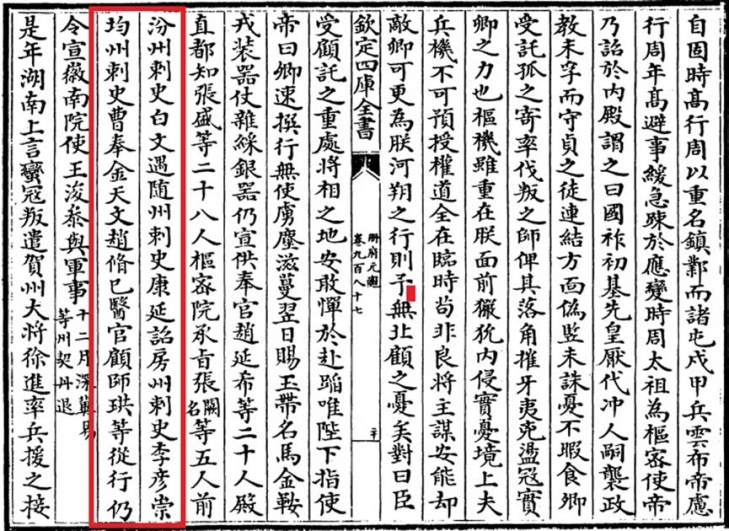 自固時高行周以重名鎮鄴而諸屯戍甲兵雲布帝慮
行周年高避事緩急踈於應變時周太祖為樞密使帝
乃詔於内殿謂之曰國祚初基先皇厭代冲人嗣襲政
教未孚而守貞之徒連結方面偽監未誅憂不暇食卿
受託孤之寄率伐叛之師俾其落角摧牙夷兇盪冦實
卿之力也樞機雖重在朕面前玁狁内侵實憂境上夫
兵機不可預授權道全在臨時苟非良將主謀安能却
敵卿可更為朕河朔之行則予無北顧之憂矣對曰臣
欽定四庫全書
冊府元龜
卷九百八十七
受顧託之重處將相之地安敢憚於赴蹈唯陛下指使
帝曰卿速撰行無使虜塵滋蔓翌日賜玉帶名馬金鞍
戎裝器仗雜綵銀器仍宣供奉官趙延希等二十人殿
直都知張盛等二十八人樞密院承㫖張闕名等五人前
汾州刺史白文遇随州刺史康延詔房州刺史李彦崇
均州刺史曹奉金天文趙脩巳醫官顧師珙等從行仍
令宣徽南院使王浚叅與軍事十二月深冀易等州契丹退
是年湖南上言蠻冦叛遣賀州大将徐進率兵援之接